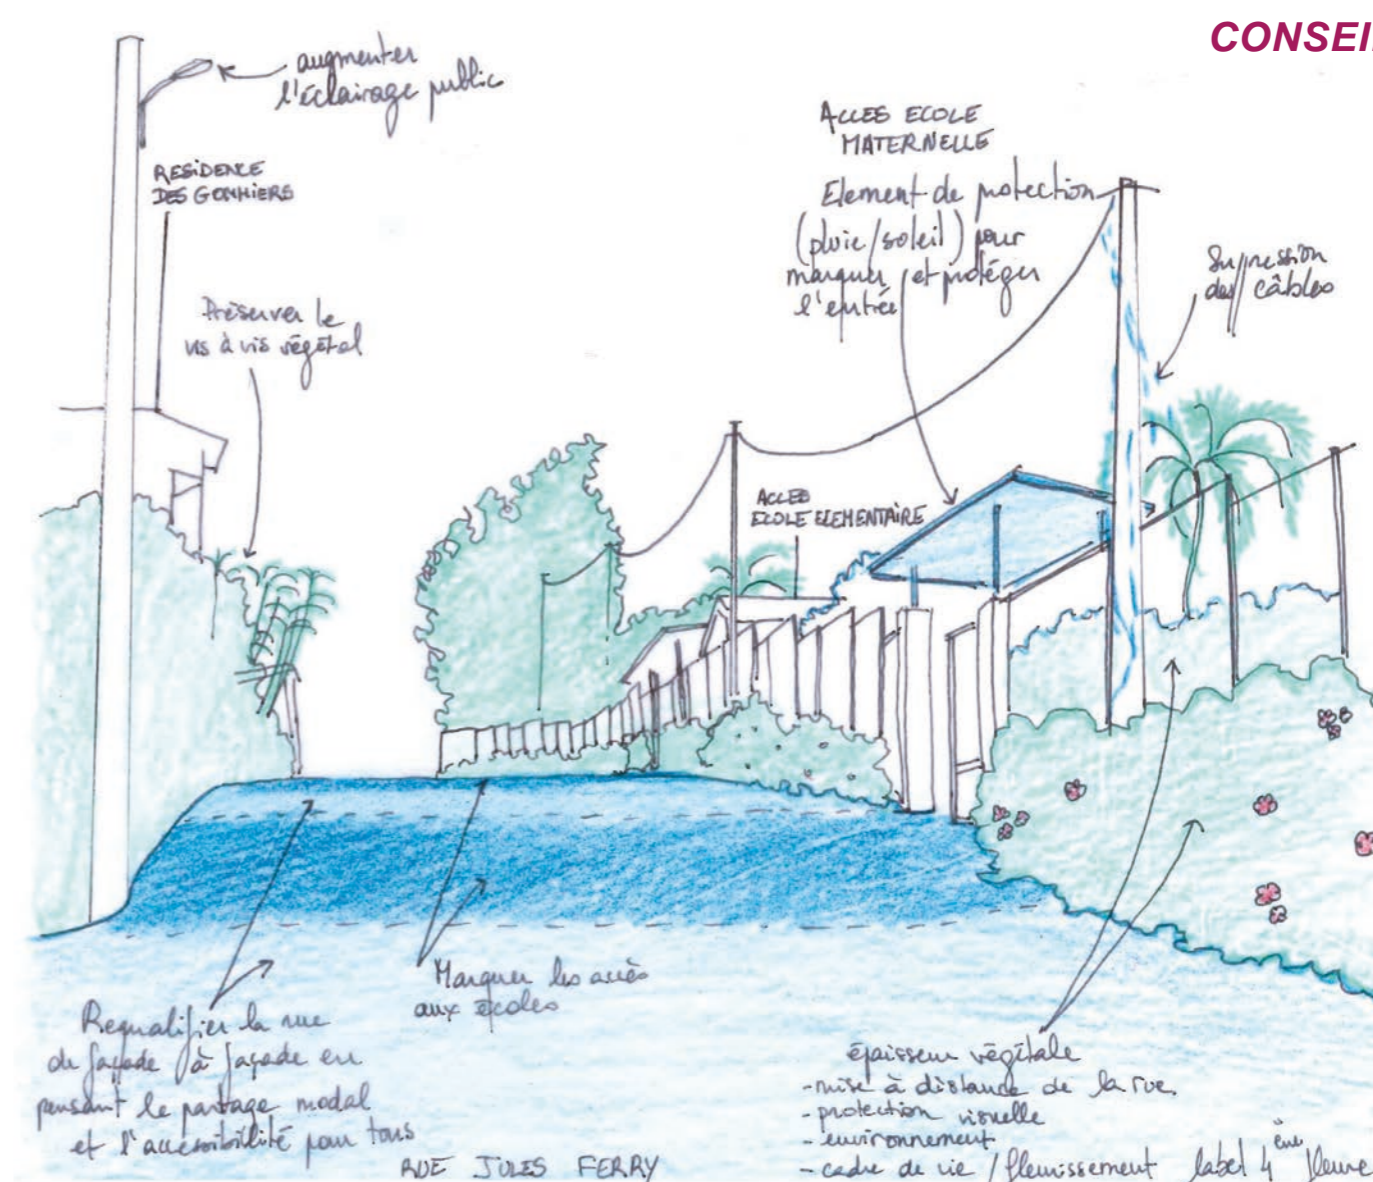 CONSEI
augmenter
l'éclairage public
RESIDENCE
DES GOMMIERS
ACCES ECOLE
MATERNELLE
Element de protection
(pluie/soleil) pour
marquer et protéger
l'entrée
Suppression
des câbles
Préserver le
vis à vis végétal
ACCES
ECOLE ELEMENTAIRE
Marquer les accès
aux écoles
Requalifier la rue
de façade à façade en
pensant le partage modal
et l'accessibilité pour tous
épaisseur végétale
- mise à distance de la rue
- protection visuelle
- environnement
- cadre de vie / fleurissement label 4ème fleure
RUE JULES FERRY